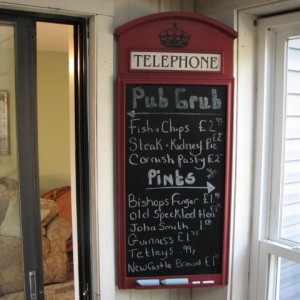 TELEPHONE
Pub Grub
Fish + Chips £2.95
Steak + Kidney Pie £2
Cornish Pasty £2
Pints
Bishops Finger £1
Old Speckled Hen £1
John Smith £1
Guinness £1
Tetleys .99
NewCastle Brown £1